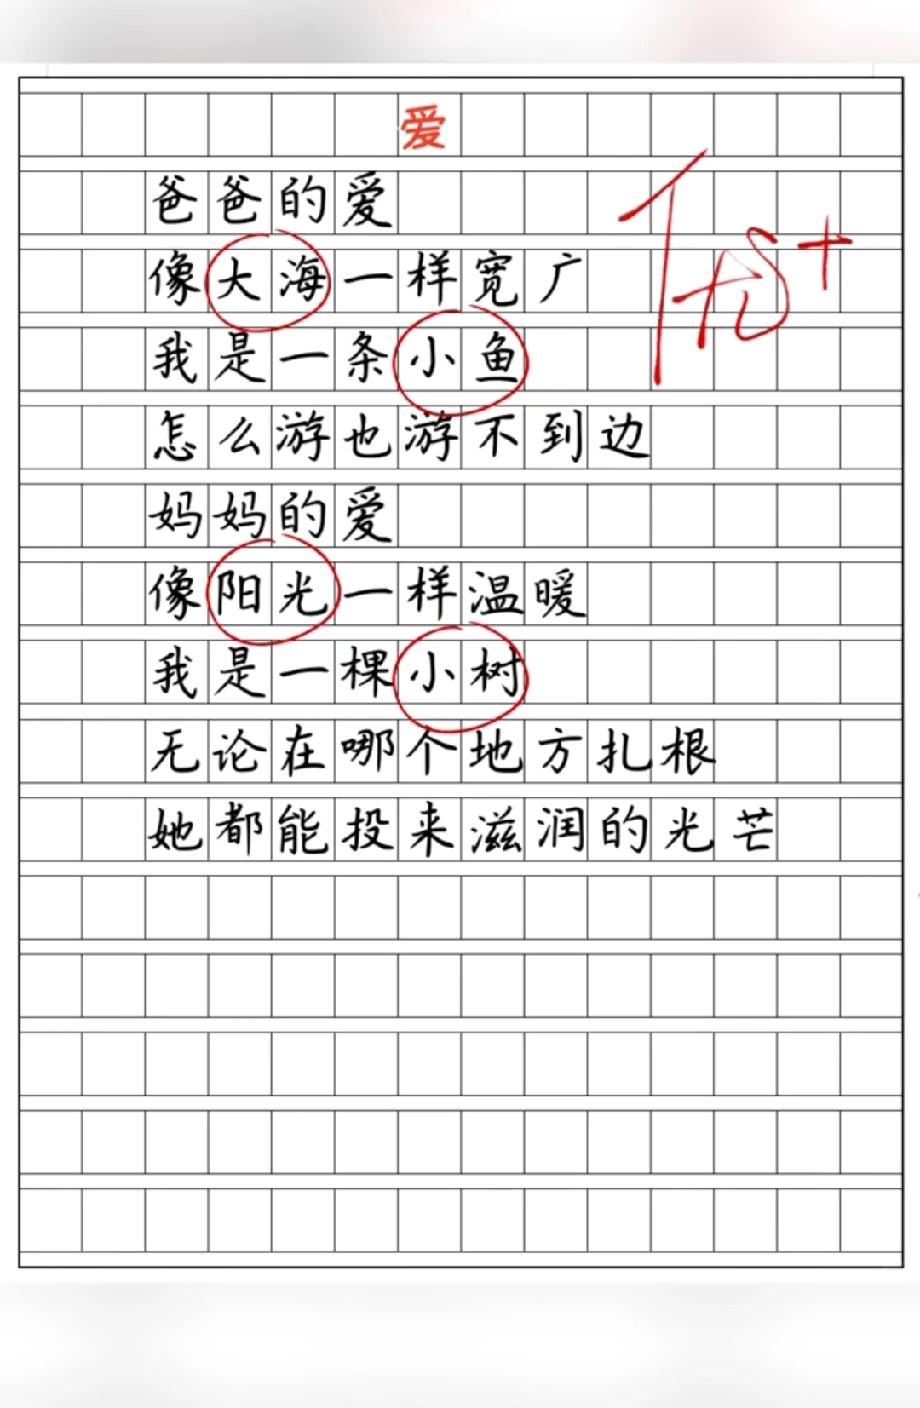 爱
爸爸的爱
像大海一样宽广
我是一条小鱼
怎么游也游不到边
妈妈的爱
像阳光一样温暖
我是一棵小树
无论在哪个地方扎根
她都能投来滋润的光芒
优+